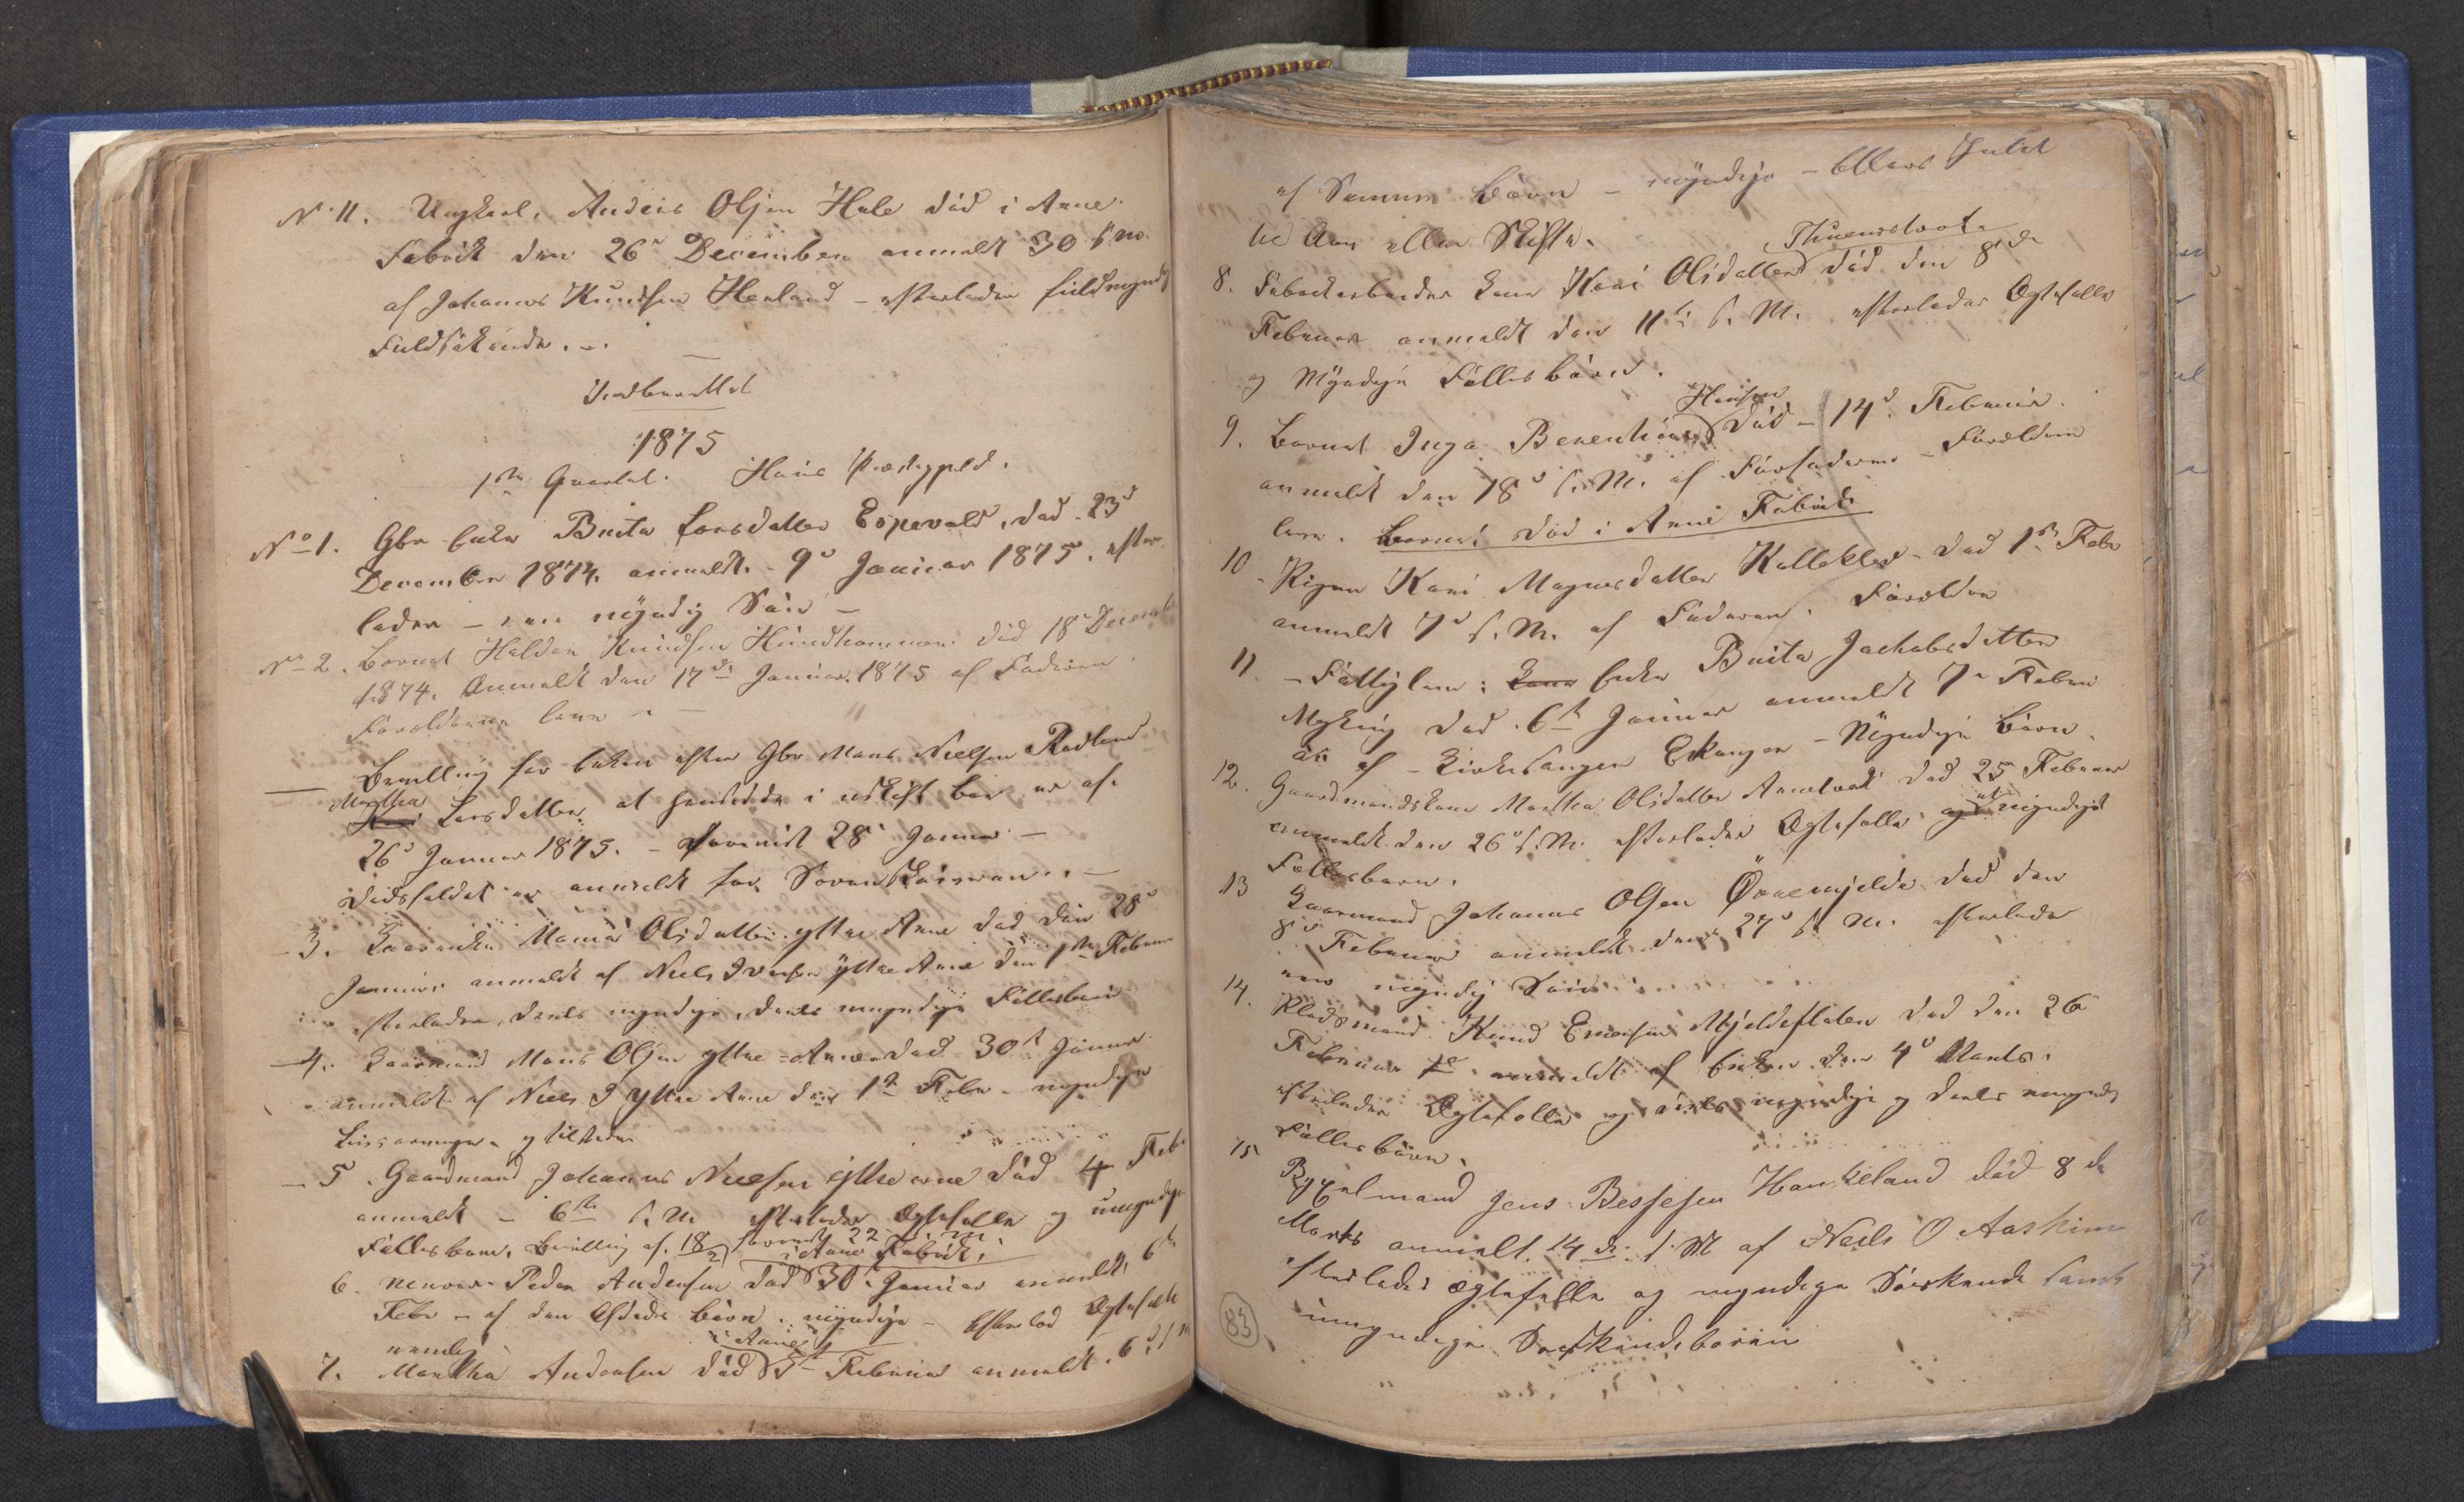 N. 11. Ungkarl, Anders Olsen Hale död i Arne
Fabrik den 26d December anmelt 30 s. m.
af Johannes Knudsen Herland - efterlader fuldmyndig
Fuldsöskende. -.
Indberettet
1875
1ste Qvartal. Hauss Præstegjeld.
No 1. Gbr Enke Brita Larsdatter Espevold, död 23d
December 1874. anmeldt. - 9d Januar 1875. efter
lader - een myndig Sön -
No 2. Barnet Haldor Knudsen Hundhammer. död 18d Decemb
1874. Anmeldt den 17de Januar 1875 af Faderen.
Forældrene leve -
Bevilling for Enken efter Gbr Mons Nielsen Rodland
Martha
Kari Larsdatter, at hensidde i uskift Bo er af.
26d Januar 1875. - Forevist 28d Januar -
Dödsfaldet er anmeldt for Sorenskriveren. -
- 3. Kaarenke Maria Olsdatter ytre Arne död den 28d
Januar anmeldt af Niels Iversen ytre Arne den 1ste Februar
efterlader, deels myndige, deels umyndige Fællesbörn
- 4. Kaarmand Mons Olsen ytre-Arne död 30te Januar
anmeldt af Niels I Ytre Arne den 1ste Febr - myndige
Livsarvinger og tilstede
- 5. Gaardmand Johannes Nielsen ytre Arne död 4 Feb
anmeldt - 6te s. M efterlader Ægtefælle og umyndige
Fællesbørn. Bevilling af. 18/2 forevist 22 s. M.
i Arne Fabrik.
6. Peder Andersen död 30. Januar anmeldt 6te
Febr - af den Afdödes Börn. myndige - Efterlod Ægtefælle
nemlig
i Arne
7. Martha Andersen död 5te Februar anmeldt. 6d s M
af Samme Börn - myndige - Ellers Intet
til Arv eller Skifte.
Thuenstvet.
8. Fabrikarbeider Kone Kari Olsdatter död den 8de
Februar anmeldt den 11te s. M. efterlader Ægtefælle
og Myndige Fællesbörn.
Hansen
9. Barnet Inga Berentine död - 14d. Februar.
anmeldt den 18d s. M. af Forfaderen - Forældrene
leve. Barnet död i Arne Fabrik
10. Pigen Kari Magnesdatter Kalleklev - död 1ste Febr
anmeldt 7d s. M. af Faderen. Forældre
11. - Fattiglem: Kone Enke Brita Jachobsdatter
Myking död. 6te Januar anmeldt 7de Febru
ar af - Kirkesanger Ekanger - Myndige Börn.
12. Gaardmandskone Martha Olsdatter Arnetveit död 25 Februar
anmeldt den 26d s. M. efterlader Ægtefælle og umyndige
Fællesbørn.
13 Kaarmand Johannes Olsen Övremjelde död den
8de Februar anmeldt den 27d s. M. efterlader
een myndig Sön
14. Pladsmand Knud Mjeldeflaten död den 26
Februar anmeldt af Enken den 4d Marts.
efterlader Ægtefælle og deels myndige og deels umyndige
Fællesbörn.
15 Bygselmand Jens Bessesen Haukeland död 8de
Marts anmelt. 14de s. M af Neels O Aasheim
efterlader ægtefelle og myndige Söeskende samt
umyndige Söeskendebörn
83